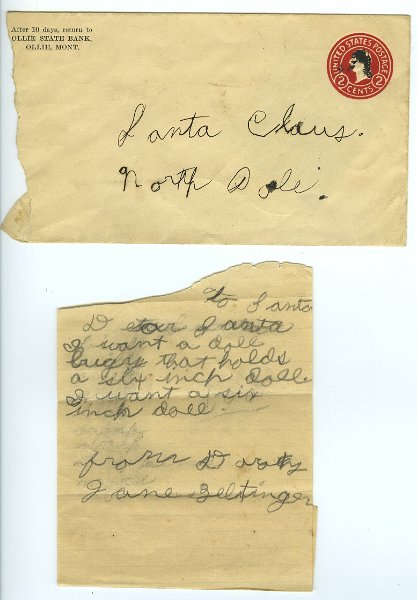 After 10 days, return to
OLLIE STATE BANK,
OLLIE, MONT.
UNITED STATES POSTAGE
2 CENTS 2
Santa Claus.
North Pole.
to Santa
Dear Santa
I want a doll
bugy that holds
a six inch doll.
I want a six
inch doll.
from Doroty
Jane Beltinger